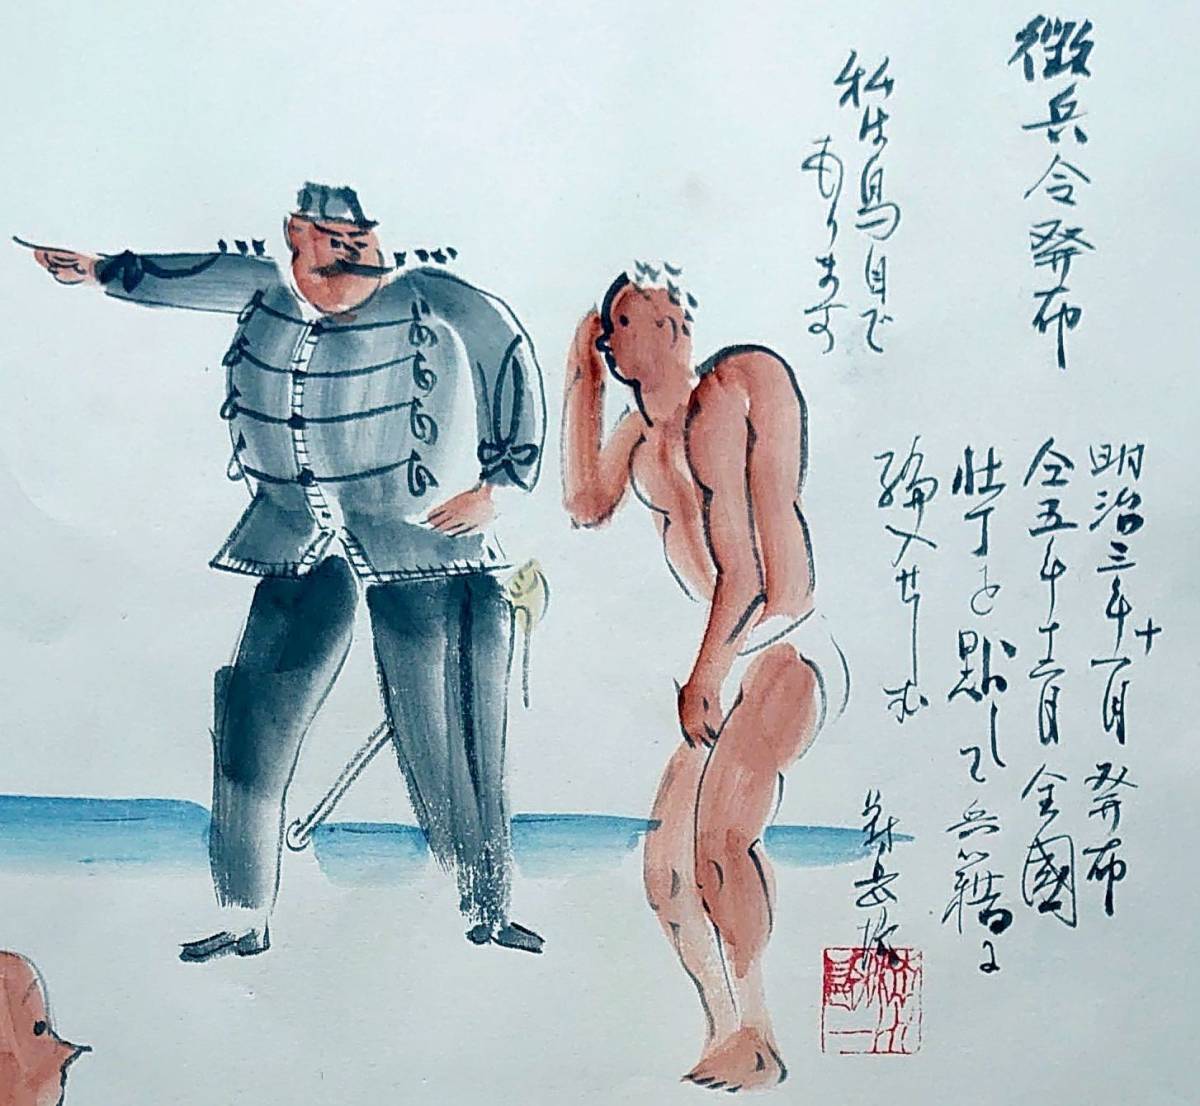 徴兵令発布
私は鳥目で
あります
明治三年十一月 発布
仝五年十二月 全國
壮丁を點して兵籍に
編入せしむ